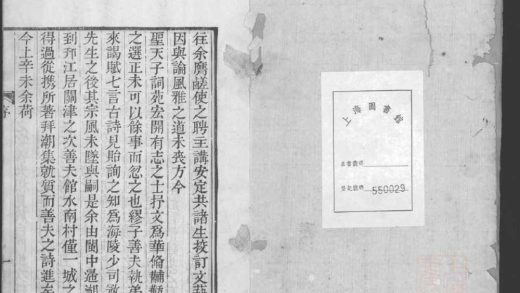 上海圖書館
索書號碼
登記號碼 550029
往余膺鹺使之聘主講安定共諸生挍訂文
因與論風雅之道未喪方今
聖天子詞苑宏開有志之士抒文爲華脩黼
之選正未可以餘事而忽之也繆子善夫執弟
來謁賦七言古詩見貽詢之知爲海陵少司
先生之後其宗風未墜與嗣是余由閩中
到邗江居關津之次善夫館水南村僅一城之
得過從携所著拜潮集就質而善夫之詩進矣
今上辛未余荷
序
一